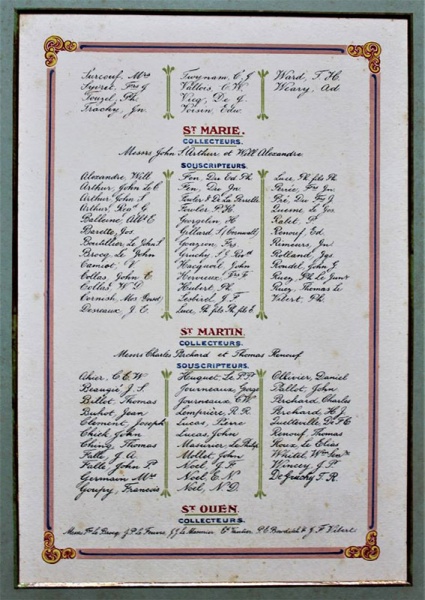 Surcouf, Mrs
Syvret, Frs J
Touzel, Ph.
Trachy, Jn
Twynam, C. J
Vallois, C. W.
Vicq, De G.
Voisin, Edw.
Ward, T. H.
Weary, Ad
ST MARIE.
COLLECTEURS.
Messrs John S. Arthur et Will Alexandre
SOUSCRIPTEURS.
Alexandre Will
Arthur, John Le C
Arthur, John S.
Arthur,
Balleine, Albt E
Barette, Jos
Boutillier, Le John S
Brocq, Le John
Camiot, V
Collas, John C
Collas, W D
Cornish,
Desreaux, J. E.
Feu, Du Ed Ph
Feu, Du Jn
Fowler, P. H.
Gorgelin, H
Gillard S.
Grayson, Frs
Gruchy,
Hacquoil, John
Hervieux, Frs F.
Hubert, Ph
Lesbirel, J. F
Luce, Ph. fils Ph. C
Luce, Ph. fils Ph
Pirée, Frs Jn
Lucerne Le Jos
Rabet, P
Renouf, Ed
Rimeurs, Jn
Rolland, Jge
Rondel, John J
Ruez, Ph. Le Junr
Ruez, Thomas Le
Vibert, Ph.
ST MARTIN.
COLLECTEURS.
Messrs Charles Perchard et Thomas Renouf
SOUSCRIPTEURS.
Ahier, C. E. W
Beaugié, J. S.
Billot, Thomas
Buhot, Jean
Clement, Joseph
Chick, John
Ching, Thomas
Falle, J. A.
Falle, John Ph.
Germain, Mrs
Godfray, Francois
Huquet, Le P. Ph
Journeaux, George
Journeaux, C. W.
Lemprière, R. R.
Lucas, Pierre
Lucas, John
Masurier, Le Philip
Mollet, John
Noël, G. P.
Noël, E. N.
Noël, N. D.
Ollivier, Daniel
Pallot, John
Perchard, Charles
Perchard, H. J.
Quetteville, De P. E
Renouf, Thomas
Roux, Le Elias
White, Wm Senr
Wincey, J. P.
De Gruchy, T. R.
ST OUEN.
COLLECTEURS.
Messrs Ph. Le Brocq, J. P. Le Feuvre, J. J. Le Marinier, Ed Vautier, P. E. Bowditch & J. F. Vibert.